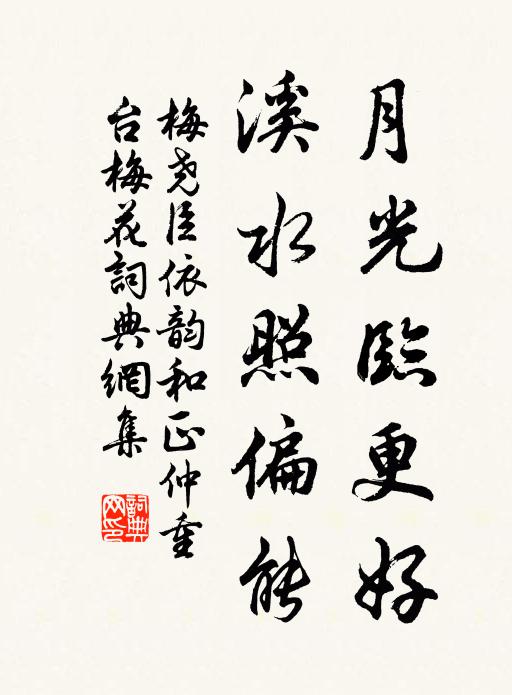 月光臨更好
溪水照偏能
梅尧臣依韵和正仲重
台梅花詞典網集
詞典
网印